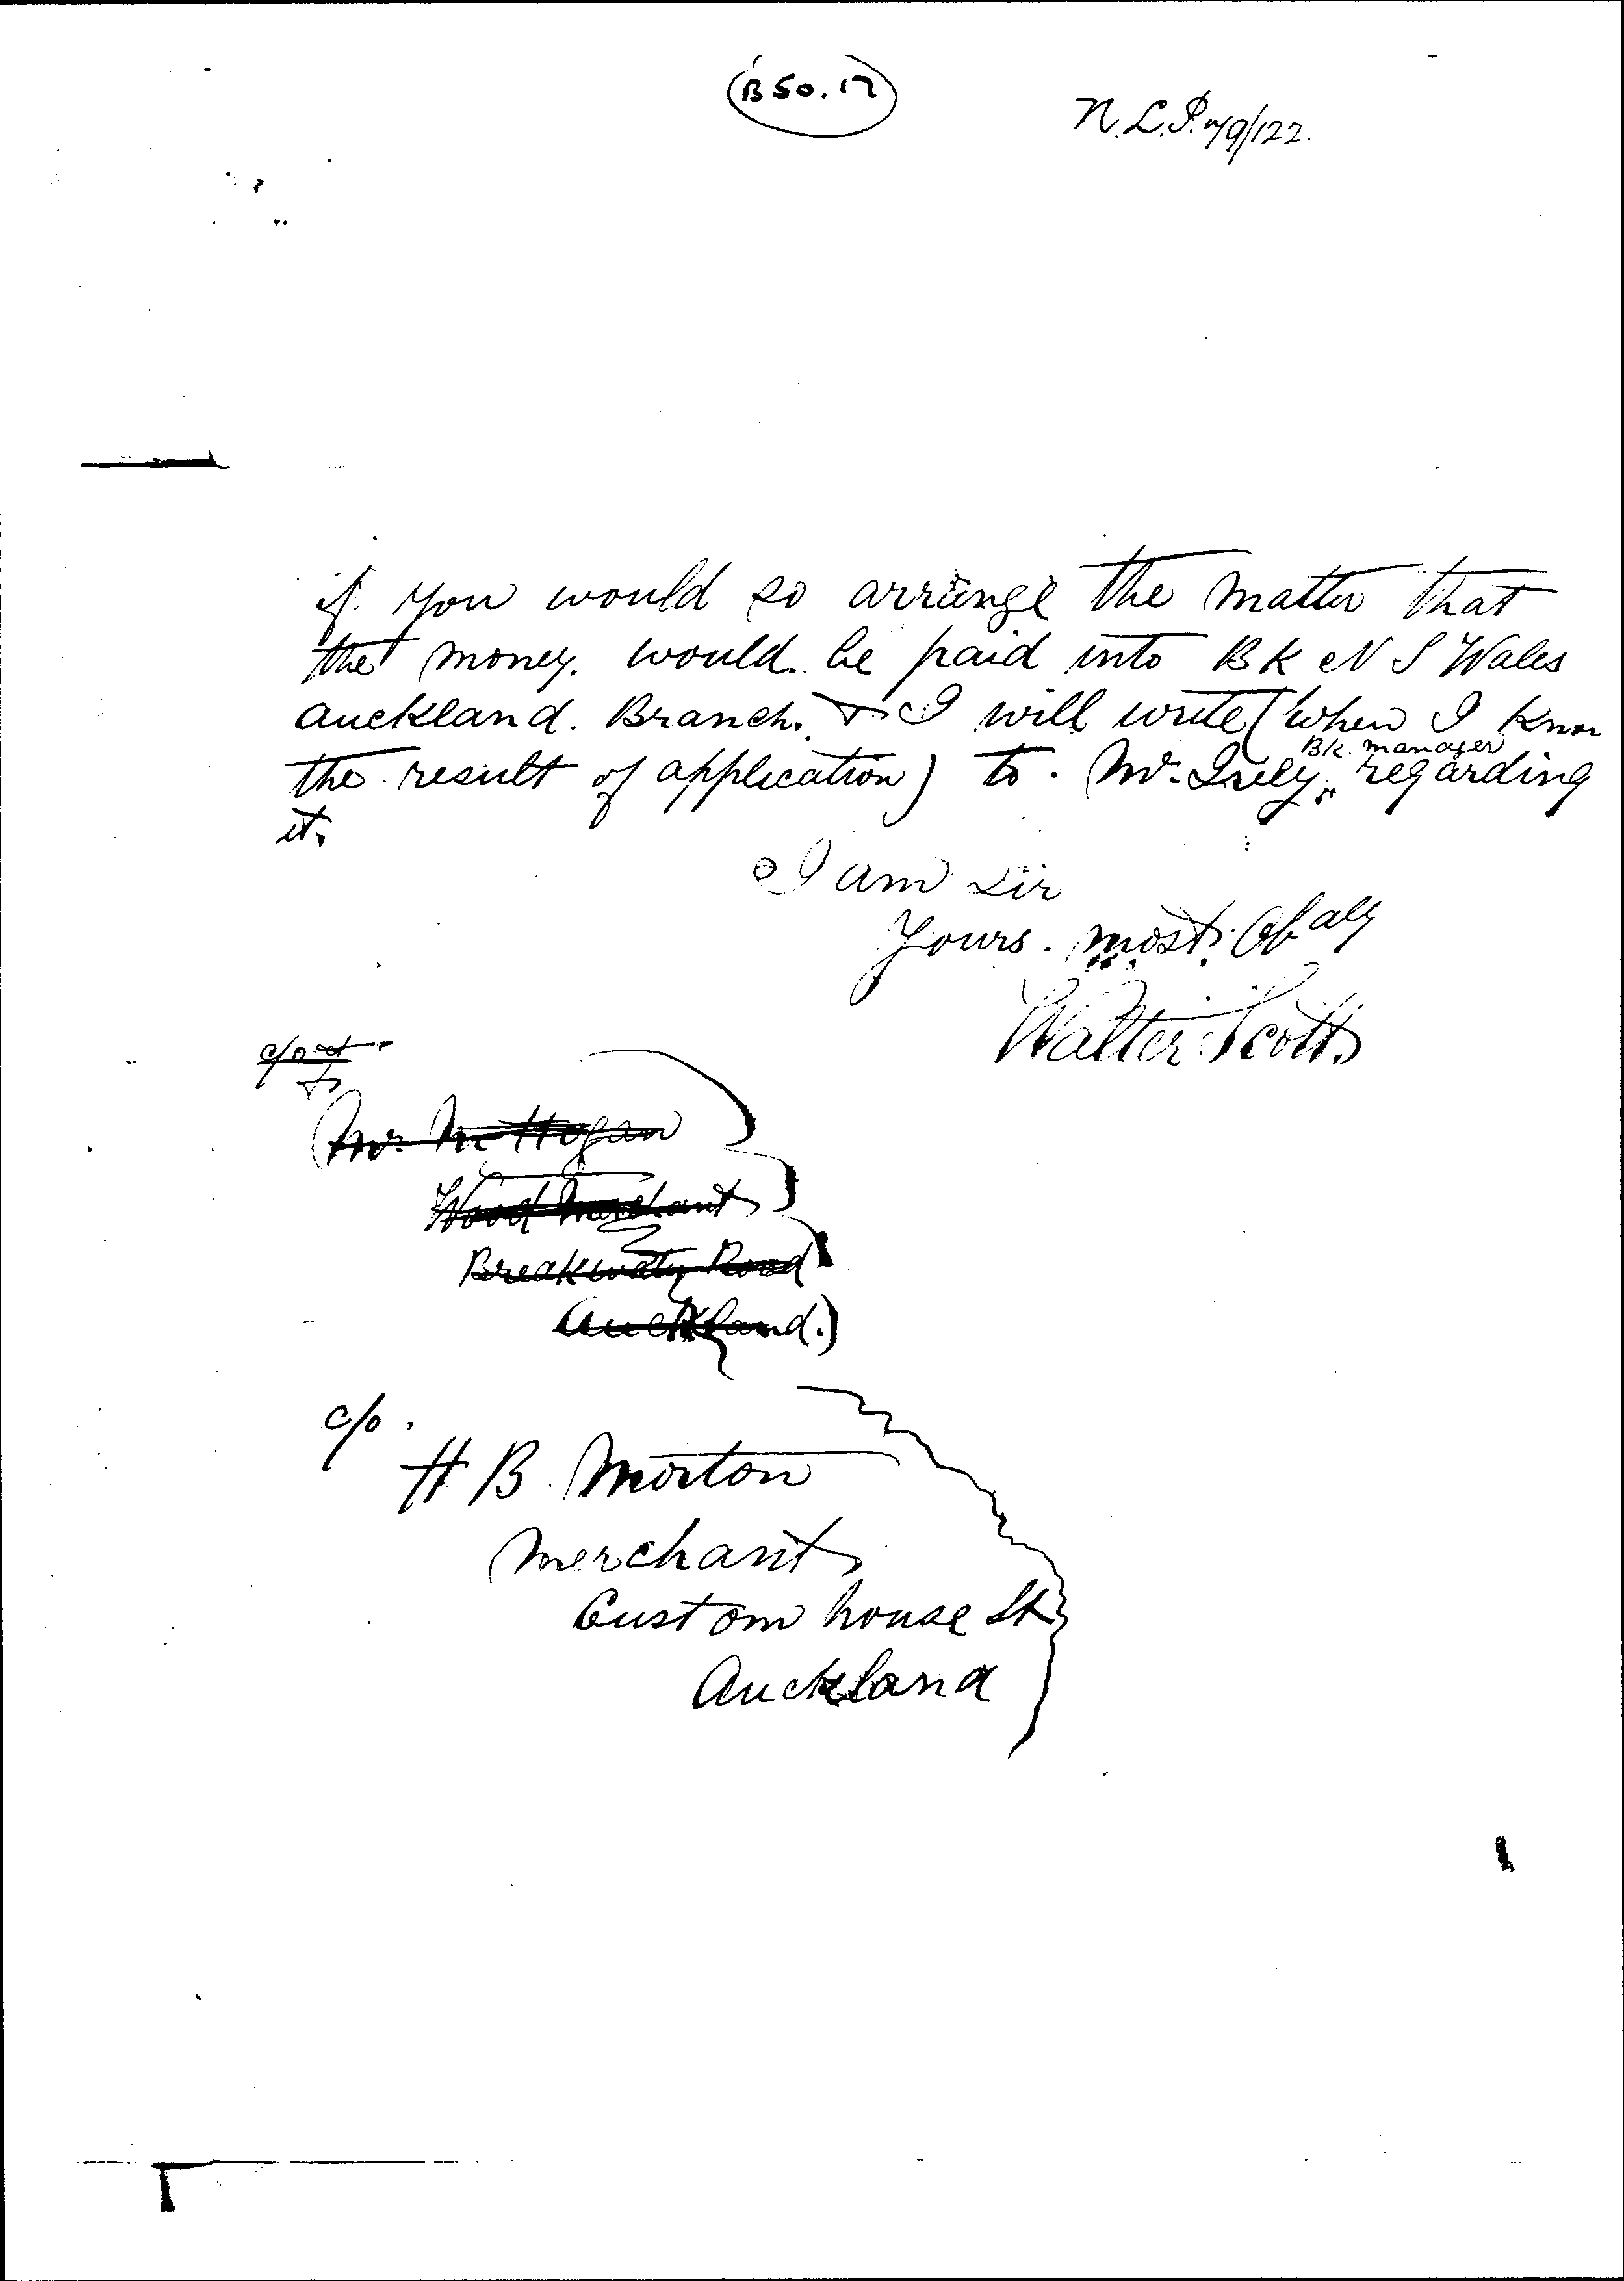 B 50.17
N.L.P. 79/122.
if you would so arrange the matter that
the money. would. be paid into BK N S Wales
Auckland. Branch. & I will write (when I know
the result of application) to. Mr. regarding
BK. manager
it.
I am Sir
Yours. most. Ob aly
Walter Scott
c/o
Mr. Hogan
Wood Merchant
Breakwater Road
Auckland.)
c/o.
H B. Morton
Merchant
Custom house St
Auckland